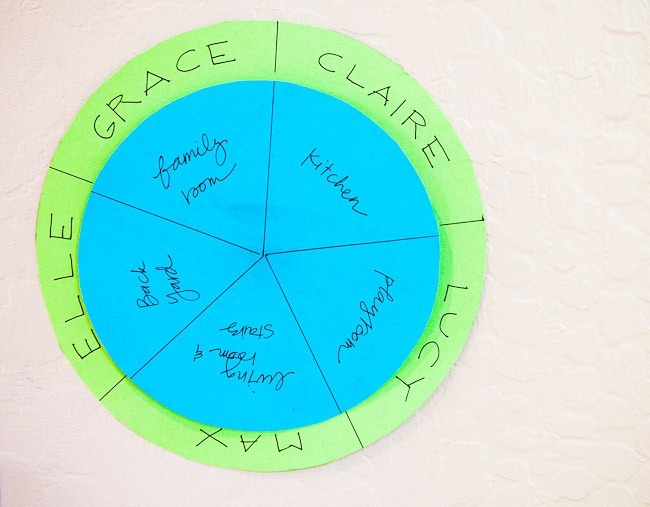 GRACE
CLAIRE
LUCY
MAX
ELLE
family
room
kitchen
playroom
living
room &
stairs
Back
yard